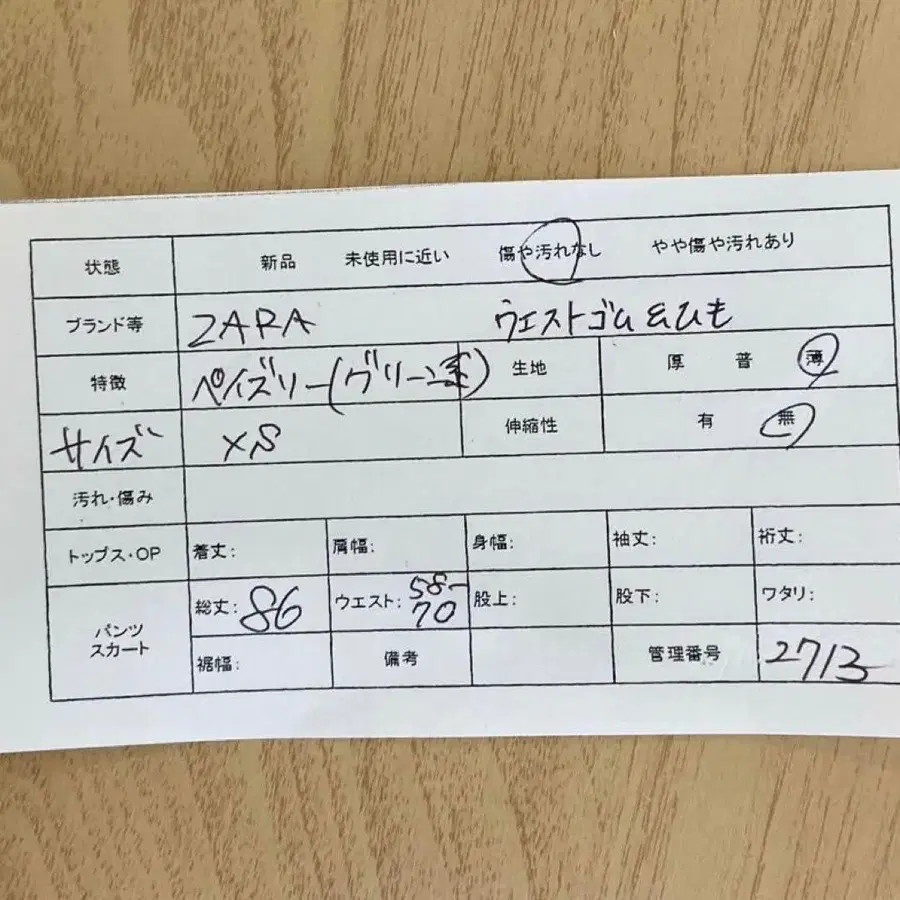 状態 新品 未使用に近い 傷や汚れなし やや傷や汚れあり
ブランド等 ZARA ウエストゴム&ひも
特徴 ペイズリー(グリーン系) 生地 厚 普 薄
サイズ XS 伸縮性 有 無
汚れ・傷み
トップス・OP 着丈: 肩幅: 身幅: 袖丈: 裄丈:
パンツ スカート 総丈: 86 ウエスト: 58-70 股上: 股下: ワタリ:
裾幅: 備考 管理番号 2713